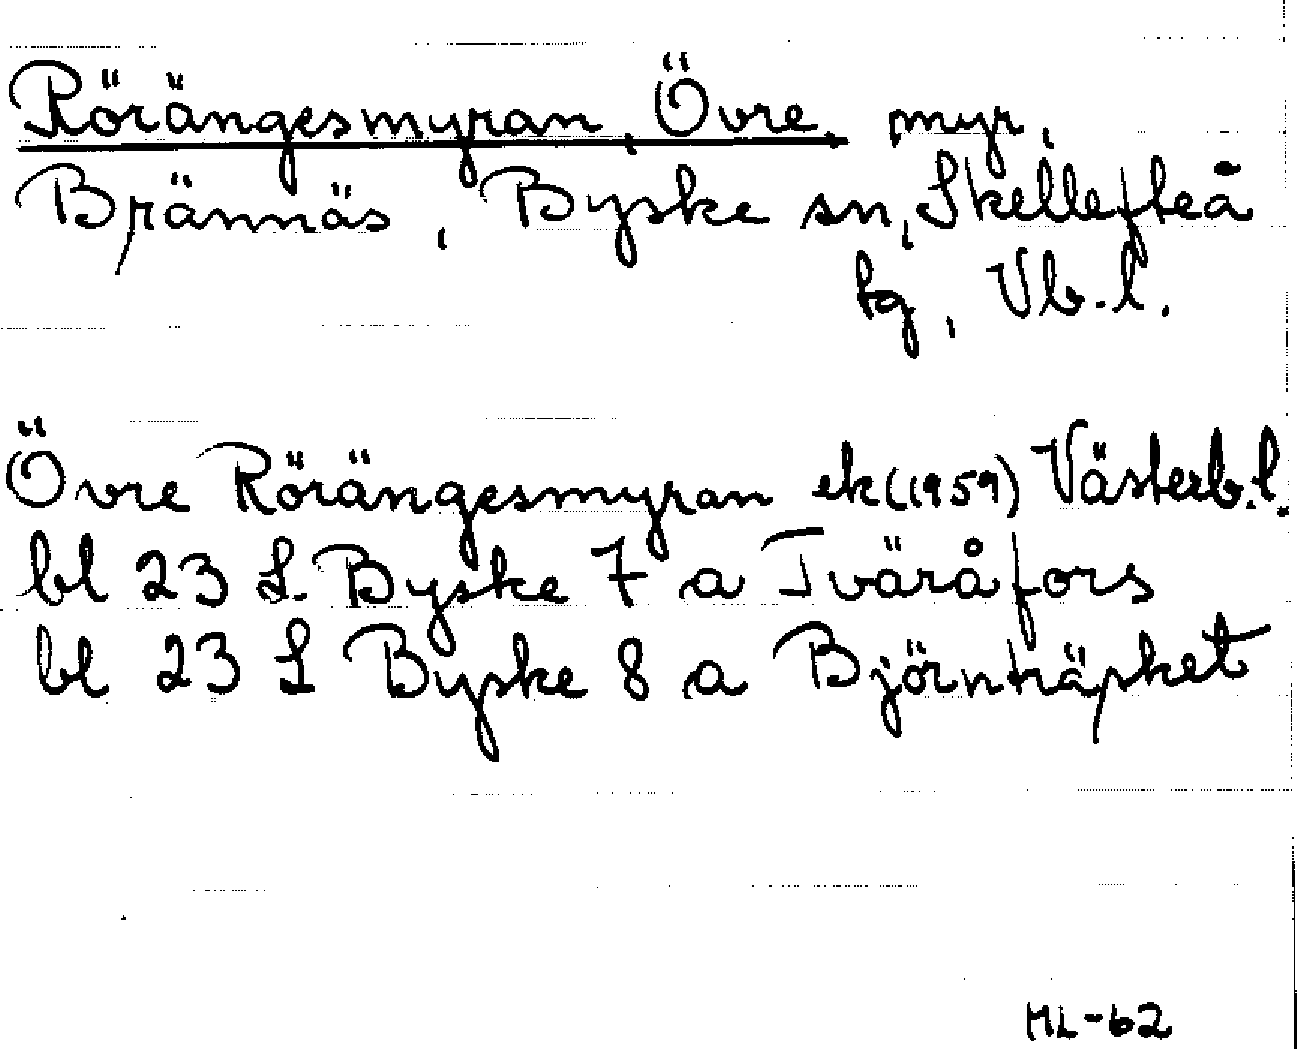 Rörängesmyran, Övre, myr,
Brännäs, Byske sn, Skellefteå
tg, Vb.l.
Övre Rörängesmyran ek (1959) Västerb.l.
bl 23 L Byske 7 a Tväråfors
bl 23 L Byske 8 a Björnträsket
ML-62